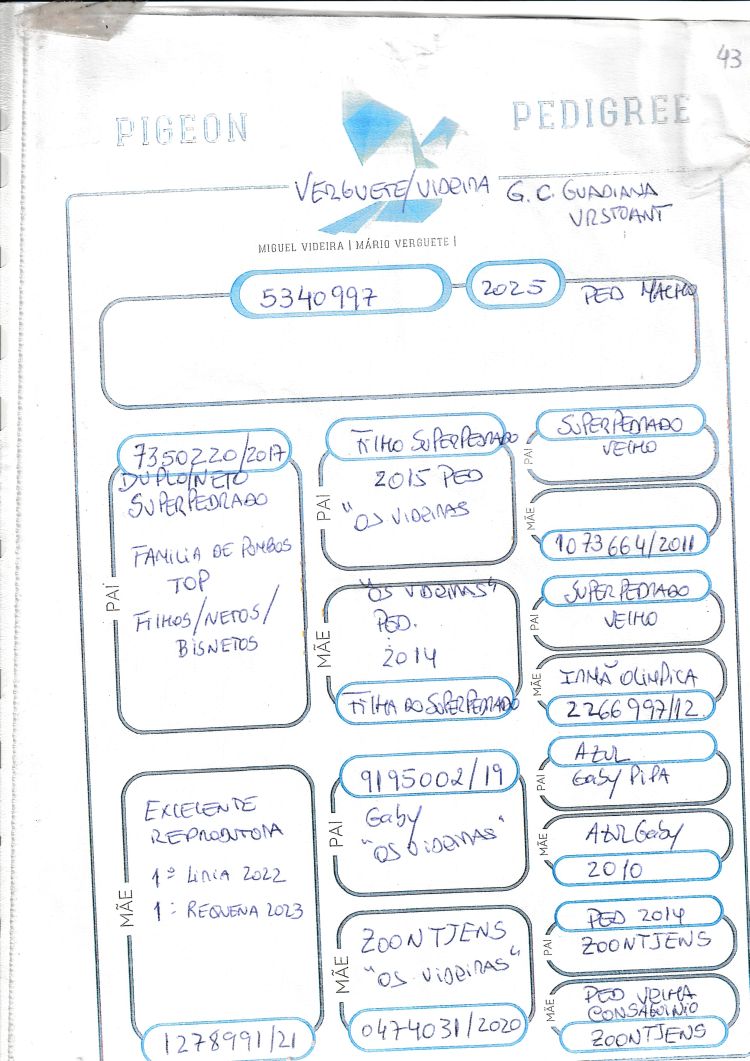 43
PIGEON PEDIGREE
VERGUETE/VIDEIRA G. C. GUADIANA
VRSTOANT
MIGUEL VIDEIRA | MÁRIO VERGUETE |
5340997 2025 PED MACHO
PAI
7350220/2017
DUPLO/NETO
SUPERPEDRADO
FAMILIA DE POMBOS
TOP
FILHOS/NETOS/
BISNETOS
MÃE
EXCELENTE
REPRODUTORA
1º LIRIA 2022
1º REQUENA 2023
1278991/21
PAI
FILHO SUPERPEDRADO
2015 PED
"OS VIDEIRAS
MÃE
"OS VIDEIRAS"
PED.
2014
FILHA DO SUPERPEDRADO
PAI
9195002/19
Gaby
"OS VIDEIRAS"
MÃE
ZOONTJENS
"OS VIDEIRAS"
0474031/2020
PAI
SUPERPEDRADO
VELHO
MÃE
1073664/2011
PAI
SUPERPEDRADO
VELHO
MÃE
IRMÃ OLIMPICA
2266997/12
PAI
AZUL
GABY PIPA
MÃE
AZUL Gaby
2010
PAI
PED 2014
ZOONTJENS
MÃE
PED VELHA
CONSAGUINIO
ZOONTJENS